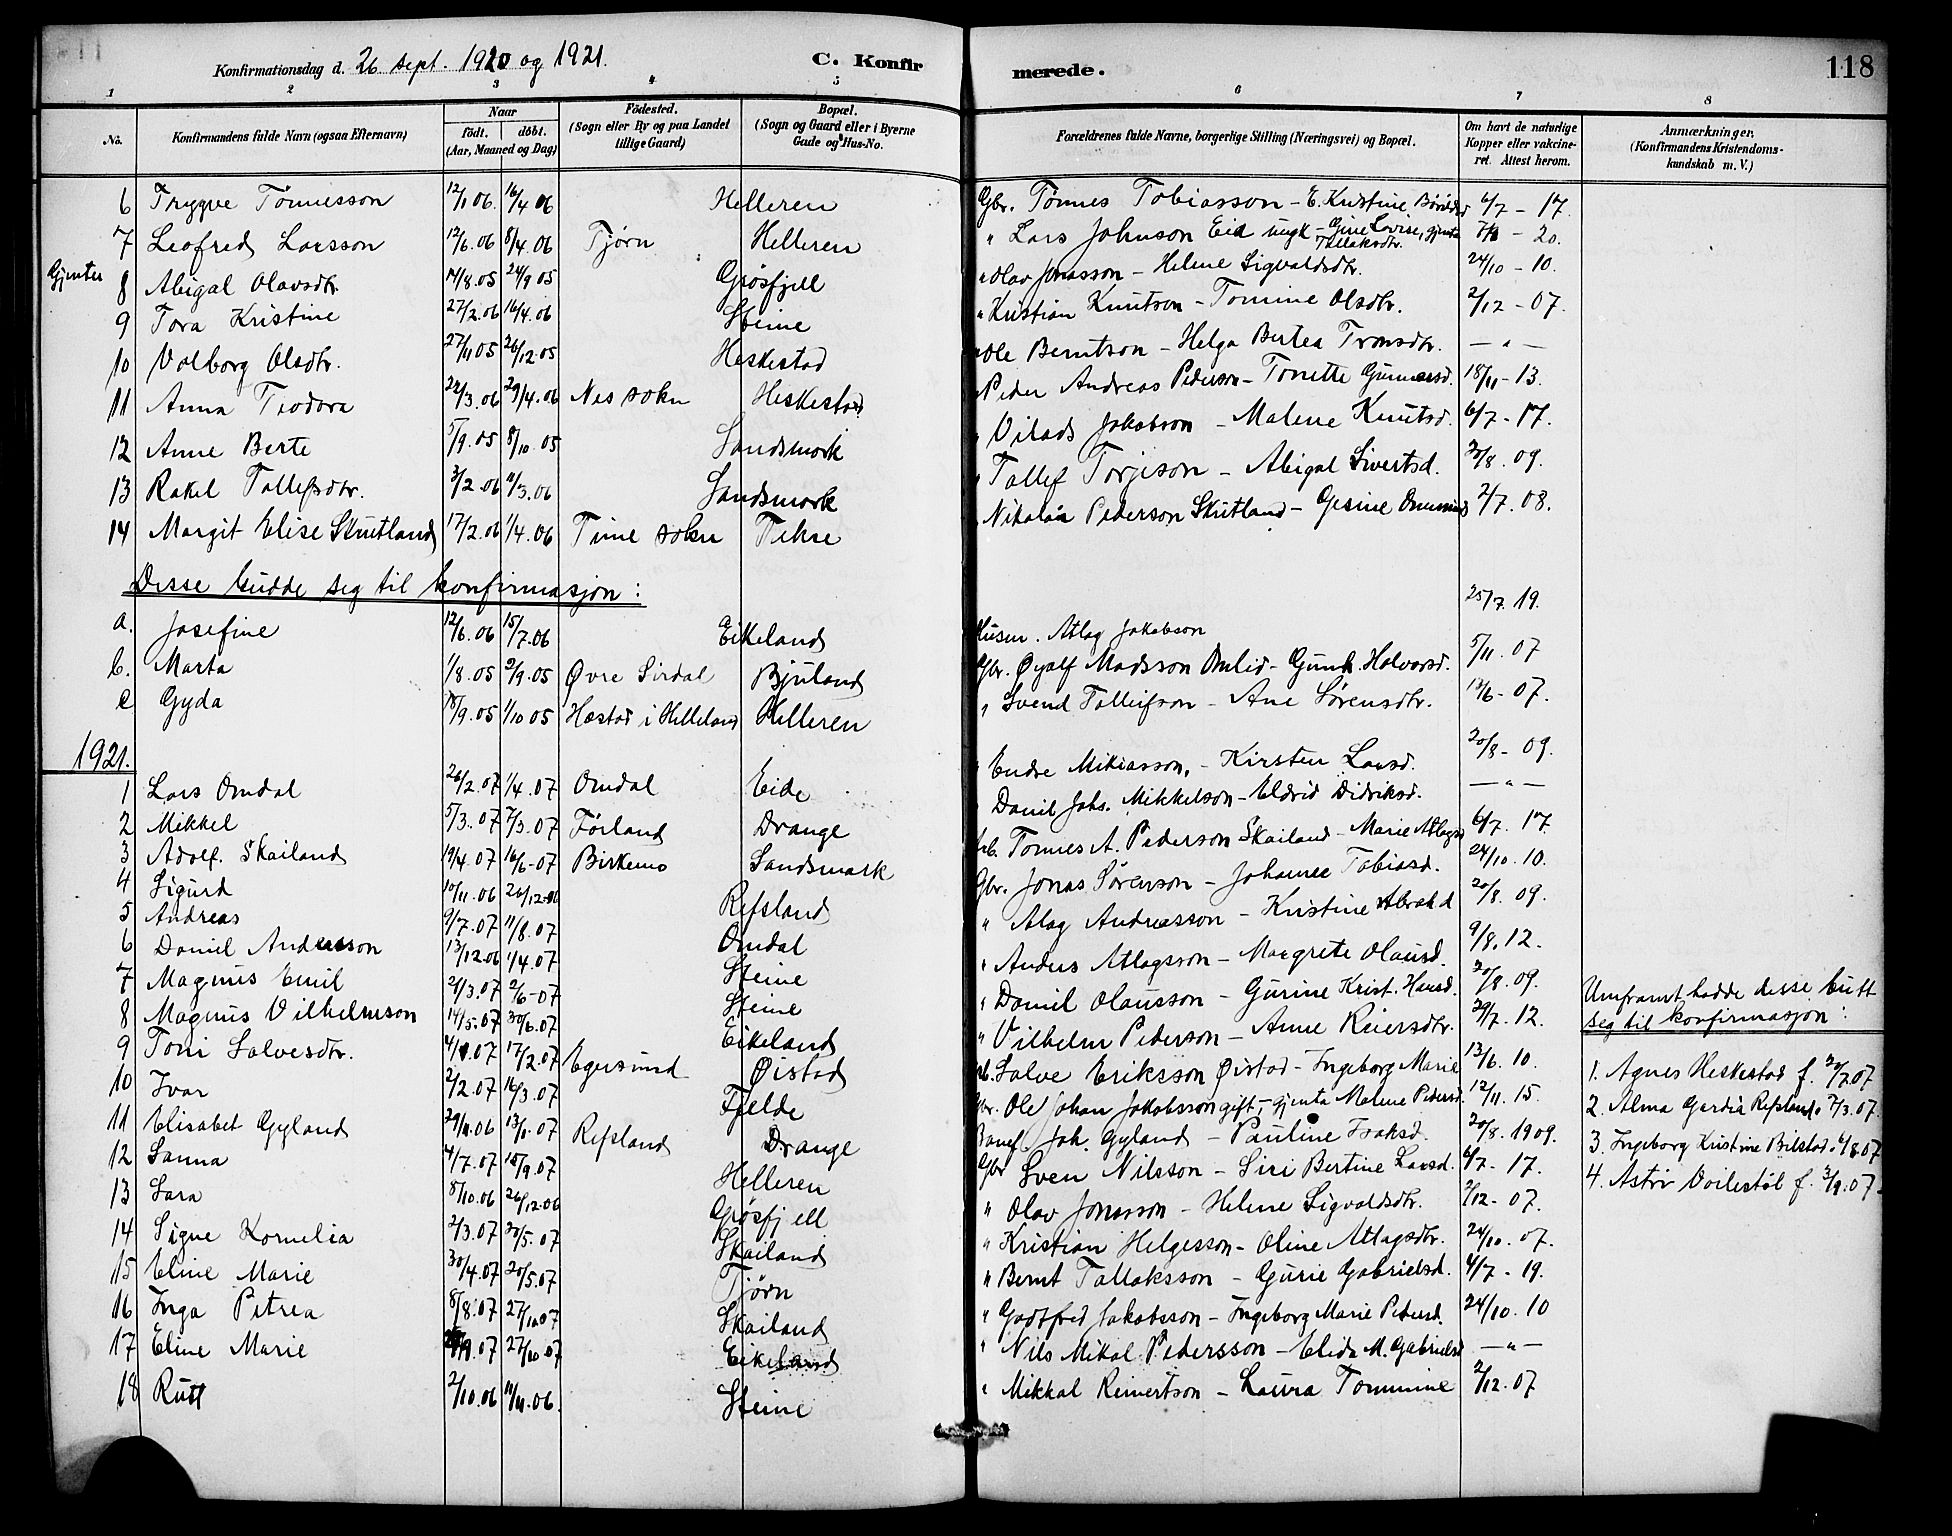 Konfirmationsdag d. 26 sept. 1920 og 1921. C. Konfirmerede. 118
1 2 3 4 5 6 7 8
No. Konfirmandens fulde Navn (ogsaa Efternavn) Naar födt. döbt. (Aar, Maaned og Dag) Födested. (Sogn eller By og paa Landet tillige Gaard) Bopæl. (Sogn og Gaard eller i Byerne Gade og Hus-No. Forældrenes fulde Navne, borgerlige Stilling (Næringsvei) og Bopæl. Om havt de naturlige Kopper eller vakcineret. Attest herom. Anmærkninger. (Konfirmandens Kristendomskundskab m. V.)
6 Trygve Tönnesson 12/1 06. 16/4 06 Helleren Gbr. Tönnes Tobiasson - E. Kristine 6/7 - 17.
7 Leofred Larsson 12/6.06 8/4.06 Tjörn Helleren " Lars Johnson Eid ungk - Gine Lovise, gjenta Tallaksdtr. - 20.
Gjenter
8 Abigal Olavsdtr 14/8.05 24/9 05 Gösfjell " Olav Jonasson - Helene Sigvaldsdtr. 24/10 - 10.
9 Tora Kristine 27/2.06 16/4.06 Steine " Kristian Knutson - Tomine Olsdtr. 2/12 - 07.
10 Valborg Olsdtr. 27/11 05 26/12.05 Heskestad " Ole Berntson - Helga Bertea Tronsdtr. — " —
11 Anna Teodora 22/3.06 29/4.06 Nes sokn Heskestad " Peder Andreas Pederson - Tonette Gunnarsd. 18/11 - 13.
12 Anne Berte 5/9.05 8/10.05 Sandsmork " Vilads Jakobson - Malene Knutsd. 6/7 - 17.
13 Rakel Tallefsdtr. 3/2.06 11/3.06 Sandsmork " Tallef Torjeson - Abigal Sivertsd. 20/8.09.
14 Margit Elise Skutland 17/2.06 1/4.06 Time sokn Tekse " Nikolai Pederson Skutland - Gesine 2/7.08.
Disse budde seg til konfirmasjon:
a. Josefine 12/6.06 15/7.06 Eikeland Husm. Atlag Jakobson 25/7.19.
b. Marta 1/8.05 2/9.05 Øvre Sirdal Bjuland Gbr. Øyalf Madsson Omlid - Gunh. Halvorsd. 5/11.07
c Gyda 18/9.05 1/10 05 Hæstad i Helleland Helleren " Svend Tolleifson - Ane Sörensdtr. 13/6 - 07.
1921.
1 Lars Omdal 26/2.07 1/4.07 Omdal Eide " Endre Mikiasson, - Kirsten Larsd. 20/8 - 09.
2 Mikkel 5/3.07 7/3.07 Förland Drange " Daniel Johs. Mikkelson - Eldrid Didriksd. — " —
3 Adolf. Skailand 19/4.07 16/6-07 Birkemo Sandsmark Tönnes A. Pederson Skailand - Marie Atlagsd 6/7.17.
4 Sigurd 10/11.06 26/12-06 Refsland Gbr. Jonas Sörenson - Johanne Tobiasd. 24/10.10.
5 Andreas 9/7.07 11/8.07 Omdal " Atlag Andreasson - Kristine 20/8.09.
6 Daniel Andersson 13/12.06 1/4.07 Steine " Anders Atlagsson - Margrete Olausd. 9/8.12.
7 Magnus Emil 21/3.07 2/6-07 Steine " Daniel Olausson - Gurine Krist. Hansd. 20/8.09.
8 Magnus Vilhelmson 14/5.07 30/6.07 Eikeland " Vilhelm Pederson - Anne Reiersdtr. 29/7.12.
9 Toni Salvesdtr. 17/2.07 Egersund Øistad Salve Eriksson Øistad - Ingeborg Marie 13/6.10.
10 Ivar 2/2.07 16/3.07 Fjelde Gbr. Ole Johan Jakobsson gift, - gjenta Malene Pedersd. 12/11.15.
11 Elisabet Gyland 29/11.06 13/1.07 Refsland Drange Joh. Gyland - Pauline Isaksd. 20/8.1909.
12 Sanna 4/7.07 15/9.07 Helleren Gbr Sven Nilsson - Siri Bertine Larsd. 6/7 - 17.
13 Sara 8/10.06 26/12.06 Gösfjell " Olav Jonasson - Helene Sigvaldsdtr. 2/12 - 07.
14 Signe Kornelia 2/3.07 20/5.07 Skailand " Kristian Helgesson - Oline Atlagsdtr. 24/10.07.
15 Eline Marie 30/4.07 20/5.07 Tjörn " Bernt Tallaksson - Gurie Gabrielsd. 4/7 - 19.
16 Inga Petrea 8/8.07 27/10.07 Skailand " Godtfred Jakobsson - Ingeborg Marie Pedersd. 24/10.10
17 Eline Marie 27/10.07 Eikeland " Nils Mikal Pedersson - Elida M. Gabrielsd — " —
18 Rutt 2/10.06 11/11.06. Steine " Mikkal Reinertson - Laura Tommine 2/12.07
Umframt hadde desse butt
seg til konfirmasjon:
1. Agnes Heskestad f. 20/7.07
2. Alma Gardia Refsland. 7/3.07.
3. Ingeborg Kristine Bilstad. 4/8.07
4. Astrid Voilestöl f. 3/9.07.